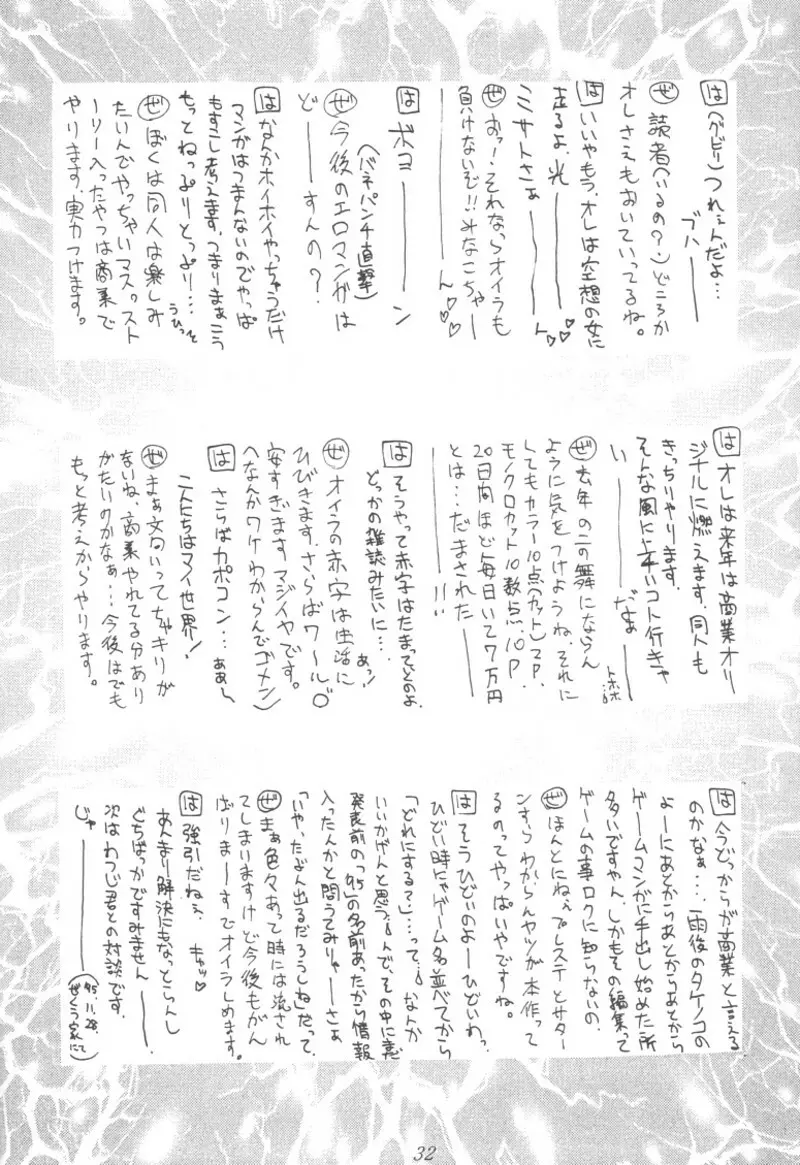 は (グビリ)つれェんだよ…
ブハ———
ぜ 読者(いるの?)どころか
オレさえもおいていってるね。
は いいやもう、オレは空想の女に
走るよ、光————
ミサトさぁ————ん♡♡
ぜ おっ!それならオイラも
負けないぞ!!みなこちゃー
————ん♡♡
は ボヨ————ン
(バネパンチ直撃)
ぜ 今後のエロマンガは
ど——すんの?
は なんかホイホイやっちゃうだけ
マンガはつまんないのでやっぱ
もすこし考えます。つまりまぁこう
もっとねっぷりとっぷり…うひっっと
ぜ ぼくは同人は楽しみ
たいんでやっちゃいマス。スト
ーリー入ったやつは商業で
やります。実力つけます。
は オレは来年は商業オリ
ジナルに燃えます。同人も
きっちりやります。
そんな風に上手いコト行きゃ
い————だよ———
トホホ…
ぜ 去年の二の舞にならん
ように気をつけようね。それに
してもカラー10点(カット)2P、
モノクロカット10数点、10P
20日間ほど毎日いて7万円
とは…だまされた———
————!!
は そうやって赤字はたまってくのよ、
どっかの雑誌みたいに…
あっ!
ぜ オイラの赤字は生活に
ひびきます。さらばワールド
安すぎます マジイヤです。
(なんかワケわからんでゴメン)
は さらばカポコン…ああ〜
こんにちはマイ世界!
ぜ まぁ文句いってちゃキリが
ないね、商業やれてる分あり
がたいのかなぁ…今後はでも
もっと考えからやります。
は 今どっからが商業と言える
のかなぁ…雨後のタケノコの
よーにあとからあとからあとから
ゲームマンガに手出し始めた所
多いですやん、しかもその編集って
ゲームの事ロクに知らないの、
ぜ ほんとにねェ、プレステとサター
ンすらわからんヤツが本作って
るのってやっぱいやですね。
は そうひどいのよーひどいわっ
ひどい時にゃゲーム名並べてから
「どれにする?」…って。なんか
いいかげんと思う。んで、その中に意
発表前の「'95」の名前あったから情報
入ったんかと問うてみりゃーさぁ
「いや、たぶん出るだろうしね」だって、
ぜ まぁ色々あって時には流され
てしまいますけど今後もがん
ばりま——すでオイラしめます。
は 強引だねぇ、キャッ♡
あんまり解決にもなっとらんし
ぐちばっかですみません———。
次はわつじ君との対談です。
じゃ————
('95.11.28. ぜくう家にて)
32